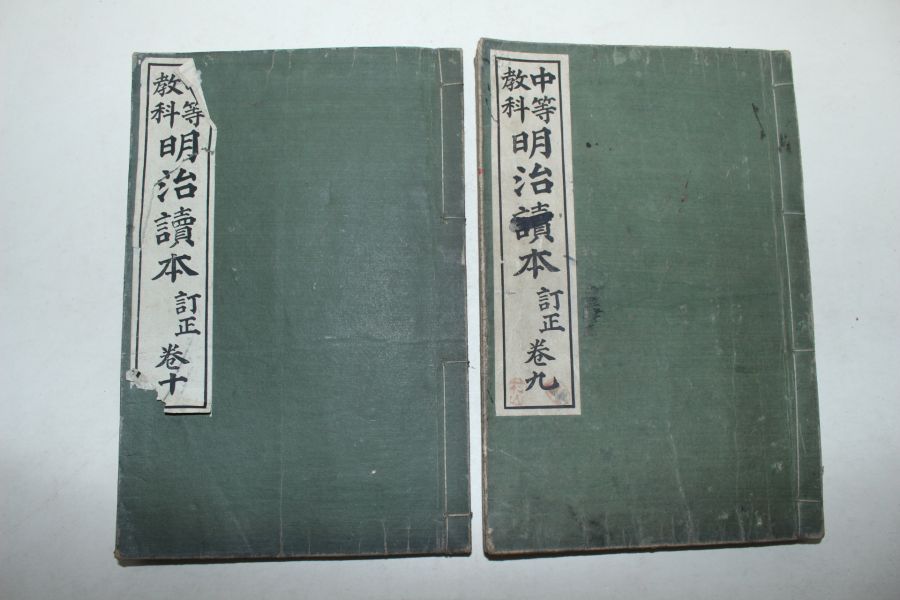 等
教科
明治讀本
訂正
卷十
中等
教科
明治讀本
訂正
卷九